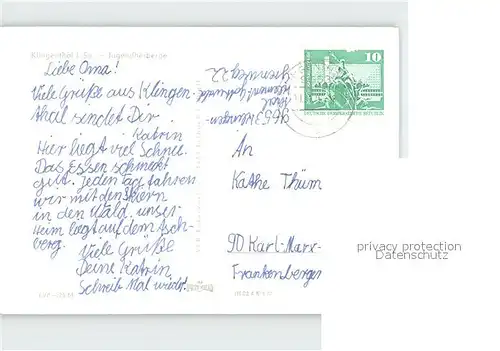 Klingenthal i. Sa. - Jugendherberge
Liebe Oma!
Viele Grüße aus Klingen-
thal sendet Dir
Katrin
Hier liegt viel Schnee.
Das Essen schmeckt
gut. Jeden Tag fahren
wir mit den Skiern
in den Wald. unser
Heim liegt auf dem Asch-
berg.
Viele Grüße
Deine Katrin
Schreib Mal wieder.
9653 Klingen-
thal
Grenzweg 22
10
DEUTSCHE DEMOKRATISCHE REPUBLIK
An
Käthe Thüm
90 Karl-Marx-
Frankenberger
privacy protection
Datenschutz